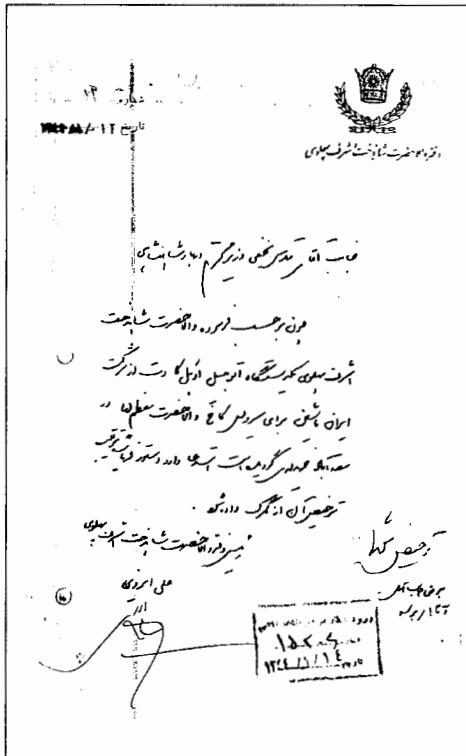 شماره
تاریخ
دفتر والاحضرت شاهدخت اشرف پهلوی
جناب آقای قدس نخعی وزیر محترم دربار شاهنشاهی
چون برحسب فرموده والاحضرت شاهدخت
اشرف پهلوی یکدستگاه اتومبیل اوپل کادت از شرکت
ایران برای سرویس کاخ والاحضرت معظم لها در
سعدآباد خریداری گردیده است استدعا دارد دستور فرمایند ترتیب
ترخیص آن از گمرک داده شود.
رئیس دفتر والاحضرت شاهدخت اشرف پهلوی
علی ایزدی
ترخیص
۱۳۴۴/۱/۱۴